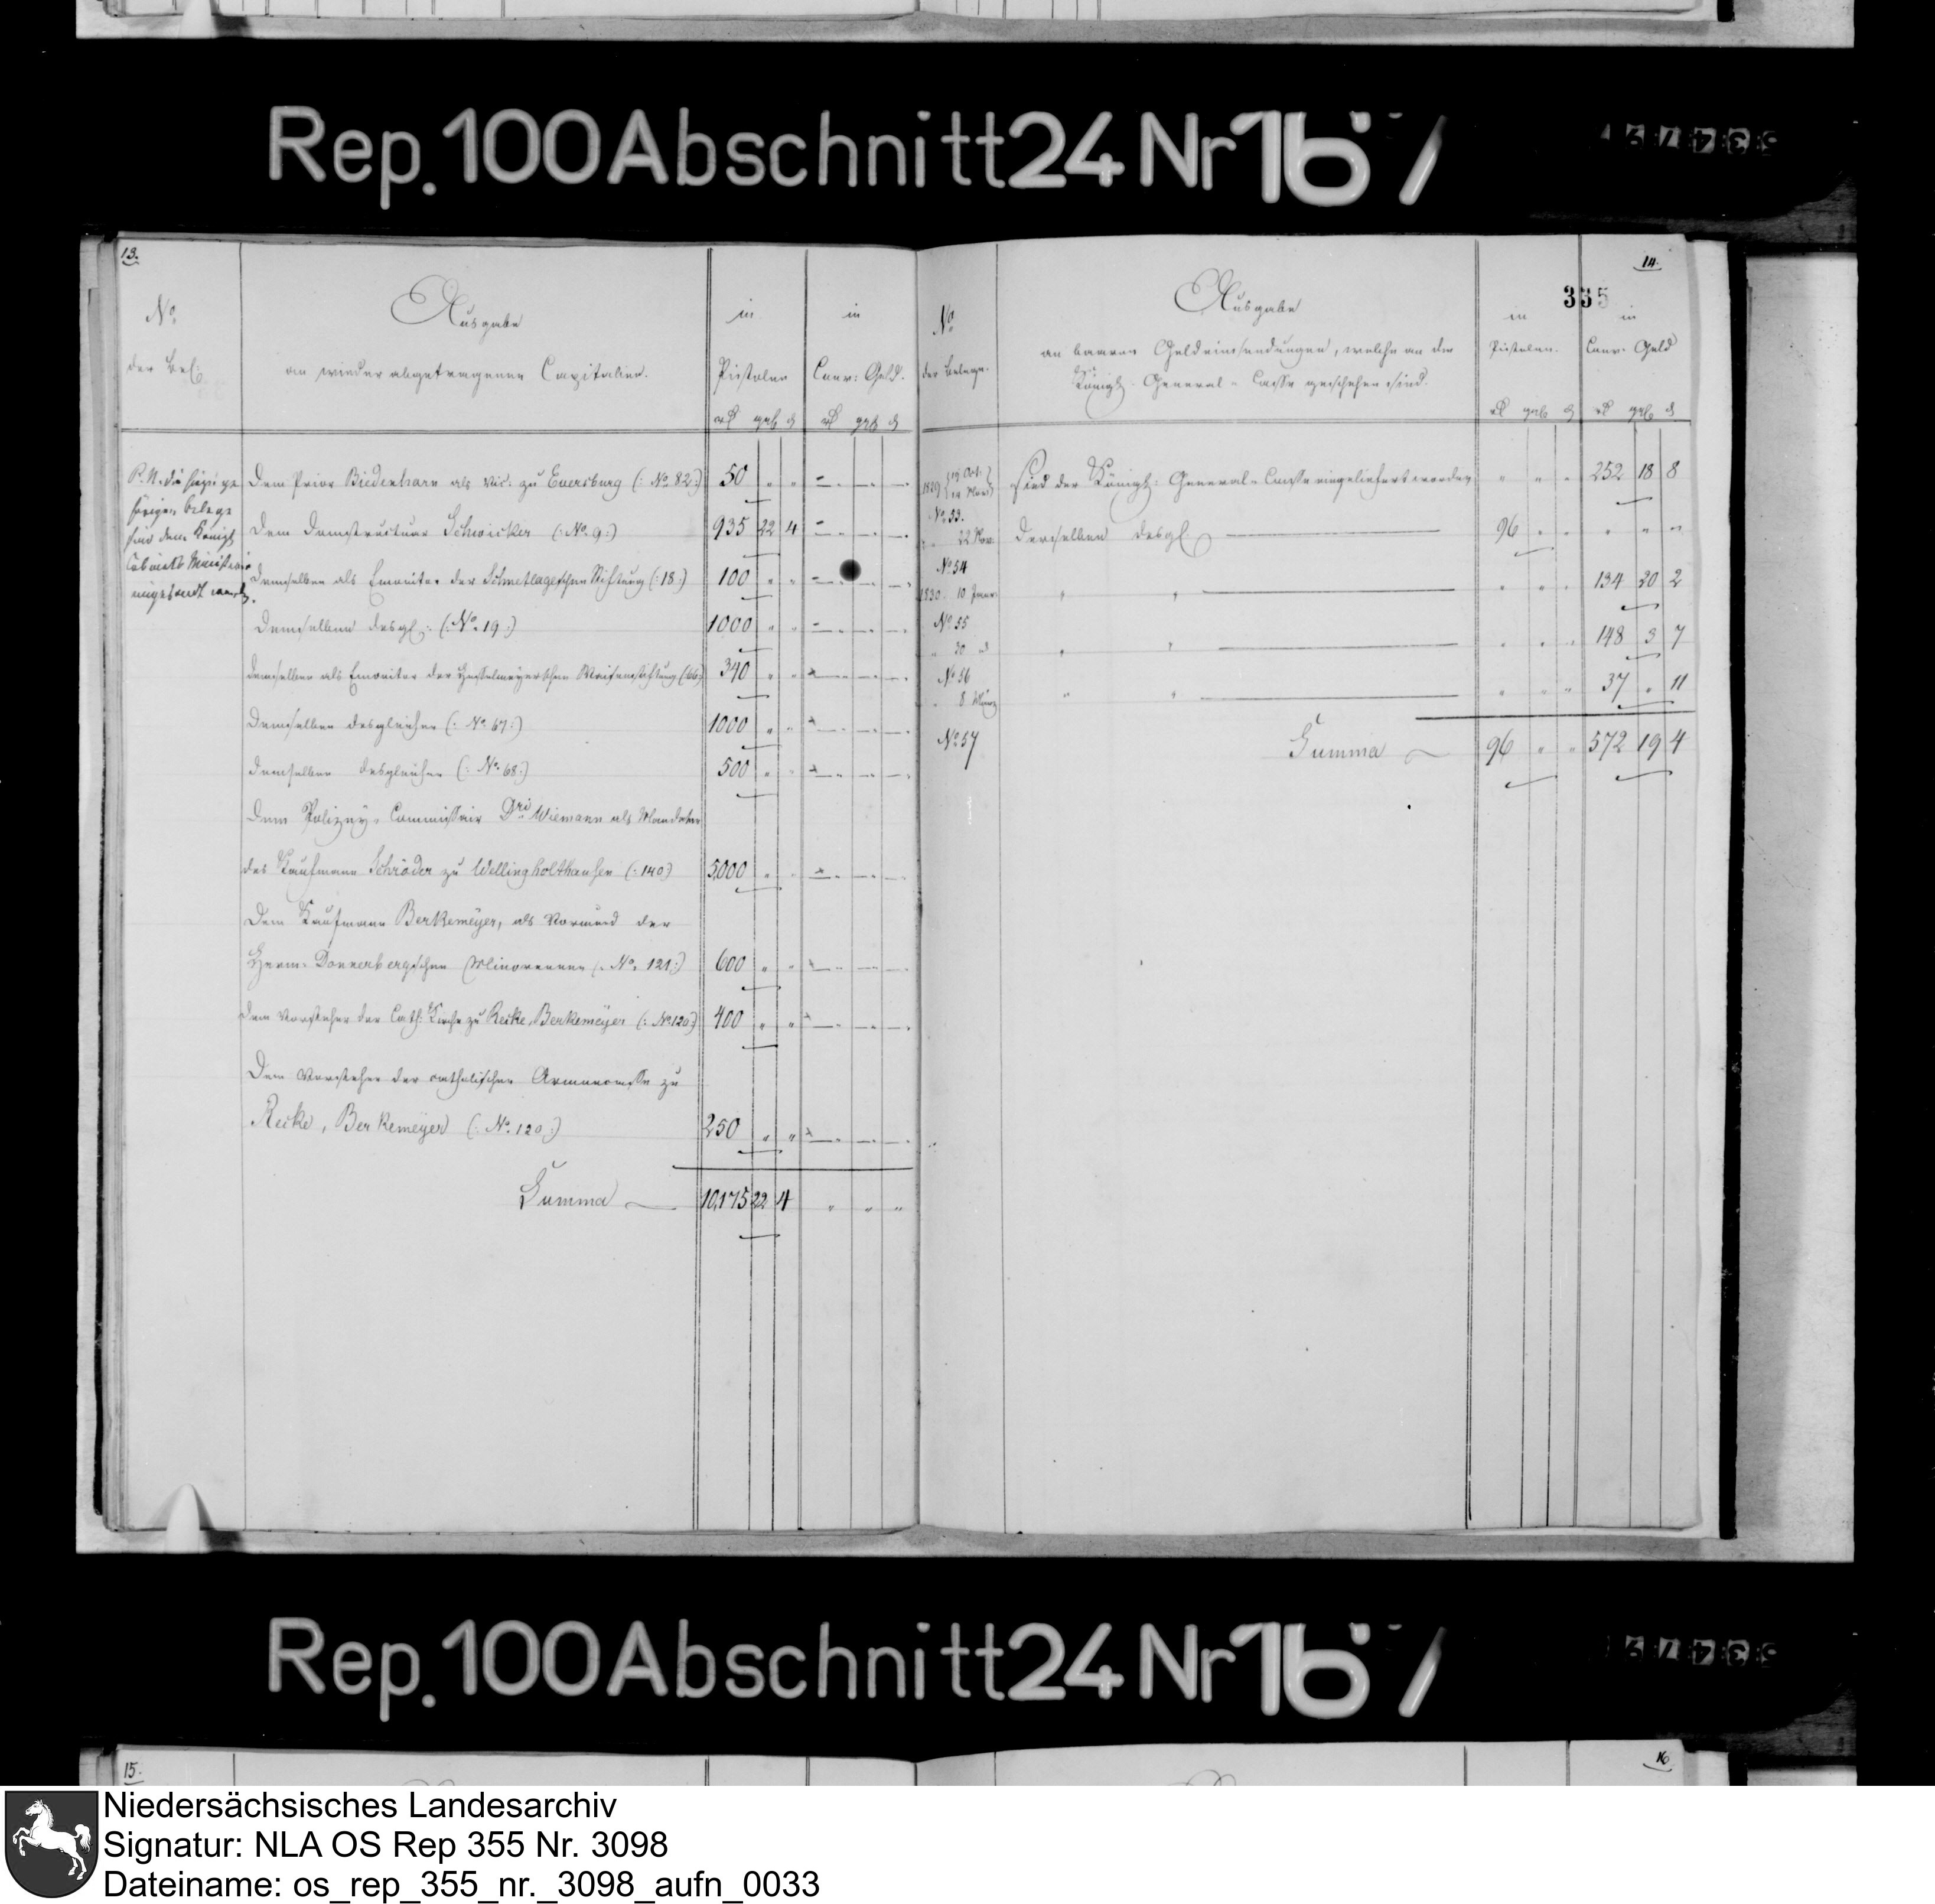 Rep. 100 Abschnitt 24 Nr 167
13.
No.
der Bel.
Ausgabe
an wieder abgetragenen Capitalien.
in
Pistolen
in
Conv: Geld.
P. N. die hiezu ge
hörigen Belege
sind dem Königl
Cabinets Ministerio
eingesandt
Dem Prior Biedenharn als Vic: zu Eversburg (: No. 82:) 50 " " – – –
Dem Domstructuar Schwicker (: No. 9:) 935 22 4 – – –
Demselben als Emonitor der Schmetlageschen Stiftung (:18:) 100 " " – – –
Demselben desgl: (: No. 19:) 1000 " " – – –
demselben als Emonitor der Hesselmeyerschen Waisenstiftung (66:) 340 " " – – –
Demselben desgleichen (: No. 67:) 1000 " " – – –
demselben desgleichen (: No. 68:) 500 " " – – –
Dem Polizey-Commissair Dri Wiemann als Mandatar
des Kaufmann Schröder zu Wellingholthausen (:140:) 5000 " " – – –
Dem Kaufmann Berkemeyer, als Vormund der
Herm: Donnerbergschen Minorennen (: No. 121:) 600 " " – – –
dem Vorsteher der Cath: Kirche zu Recke, Berkemeyer (: No. 120:) 400 " " – – –
Dem Vorsteher der catholischen Armencasse zu
Recke, Berkemeyer (: No. 120:) 250 " " – – –
Summa 10,175 22 4 " " "
14.
335
No.
der Belege.
Ausgabe
an baaren Geldeinsendungen, welche an die
Königl. General-Casse geschehen sind.
in
Pistolen.
in
Conv: Geld
1829 19 Oct:
14 Nov:
Sind der Königl: General-Casse eingeliefert worden " " " 252 18 8
No. 53.
" 22 Nov. Derselben desgl. 96 " " " " "
No 54
1830. 10 Janr. " " " " " 134 20 2
No. 55
" 30 " " " " " " 148 3 7
No 56
" 8 März " " " " " 37 " 11
No. 57
Summa 96 " " 572 19 4
Rep. 100 Abschnitt 24 Nr 167
15.
16
Niedersächsisches Landesarchiv
Signatur: NLA OS Rep 355 Nr. 3098
Dateiname: os_rep_355_nr._3098_aufn_0033